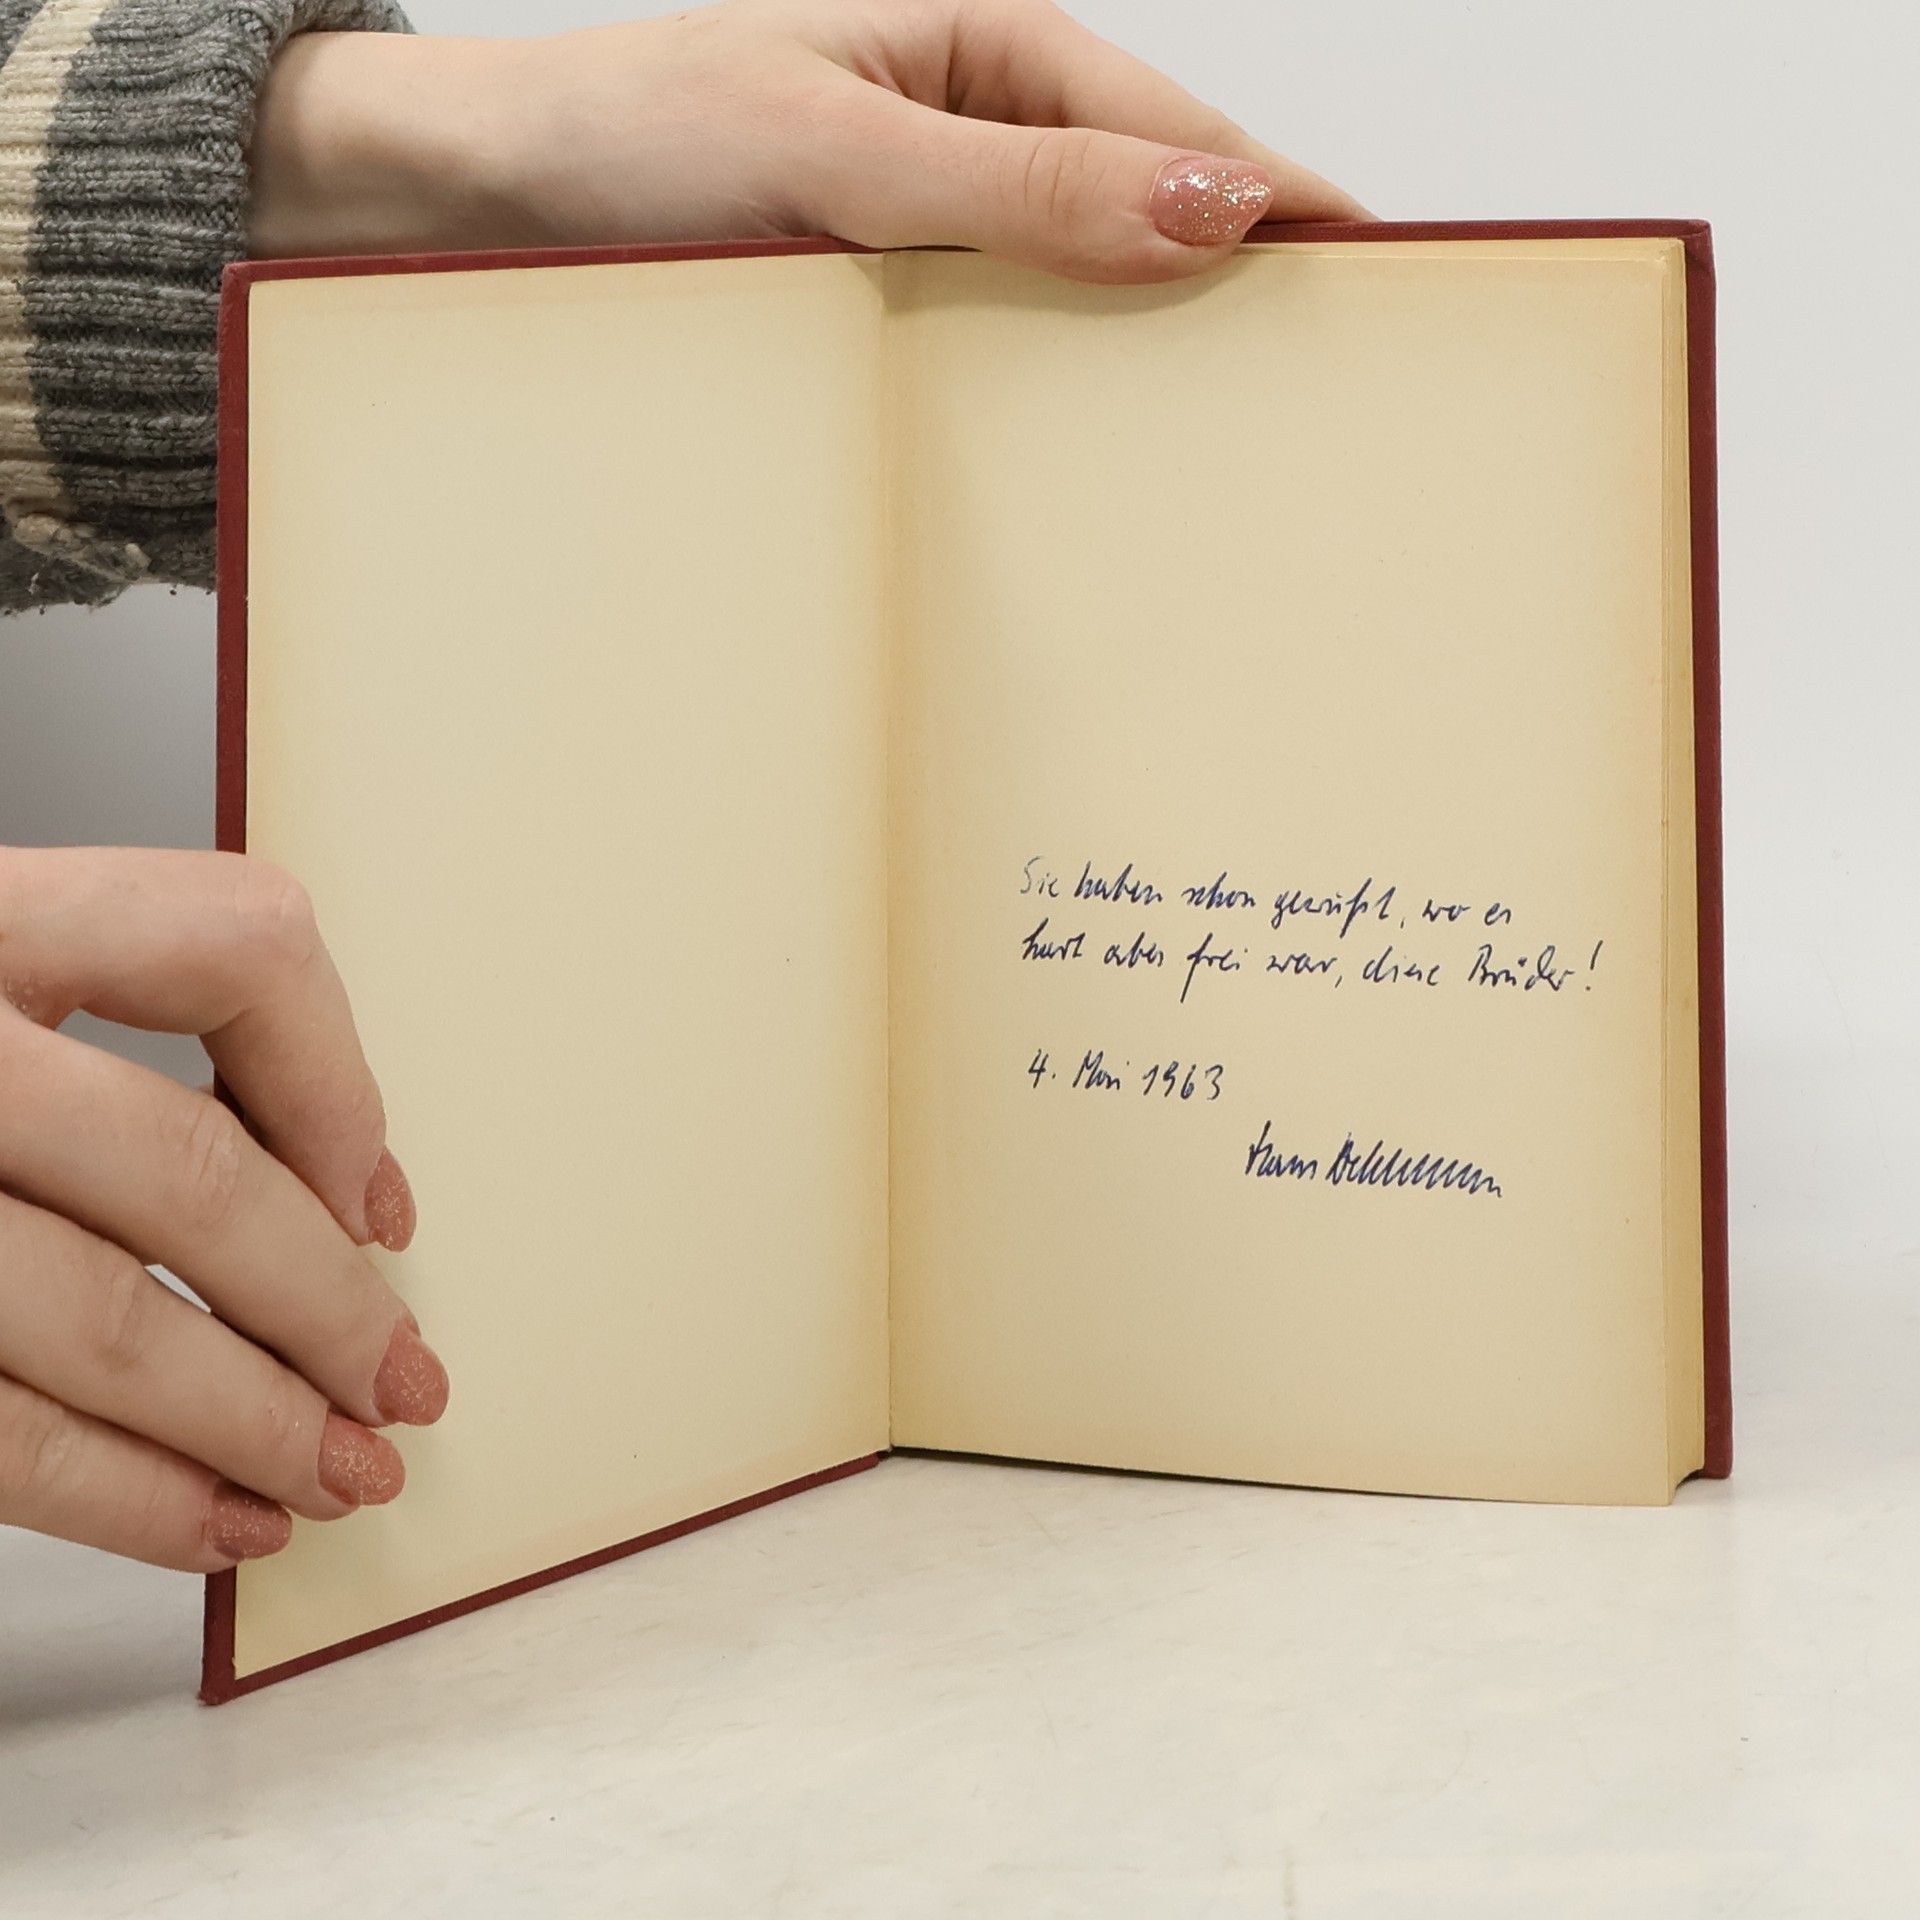 Sie haben schon gewußt, wo es
hart aber frei war, diese Brüder!
4. Mai 1963
Hans